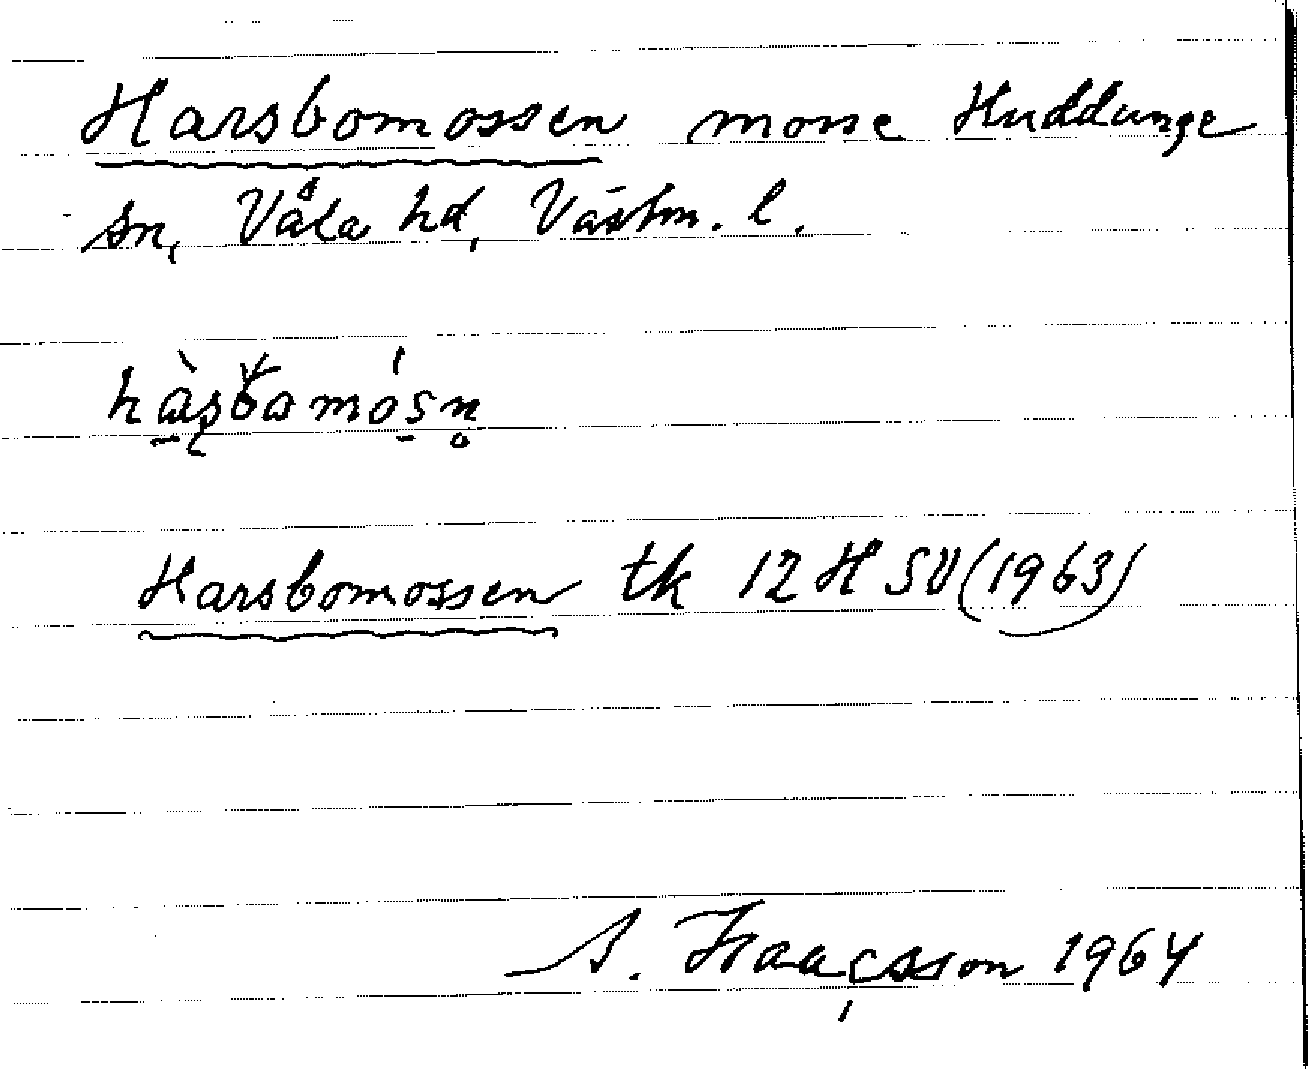 Harsbomossen mosse Huddunge
sn, Våla hd, Västm. l.
hàʂbamósn̥
Harsbomossen tk 12 H SV (1963)
S. Isaacsson 1964